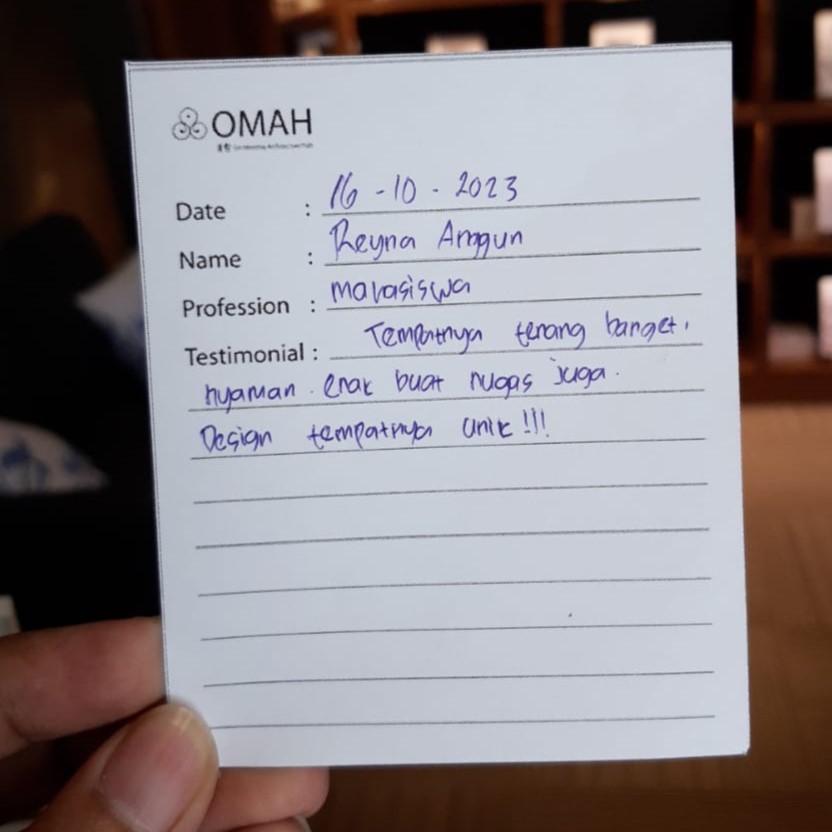 OMAH
Date : 16 - 10 - 2023
Name : Reyna Anggun
Profession : mahasiswa
Testimonial : Tempatnya tenang banget,
nyaman. enak buat nugas juga.
Design tempatnya unik!!!